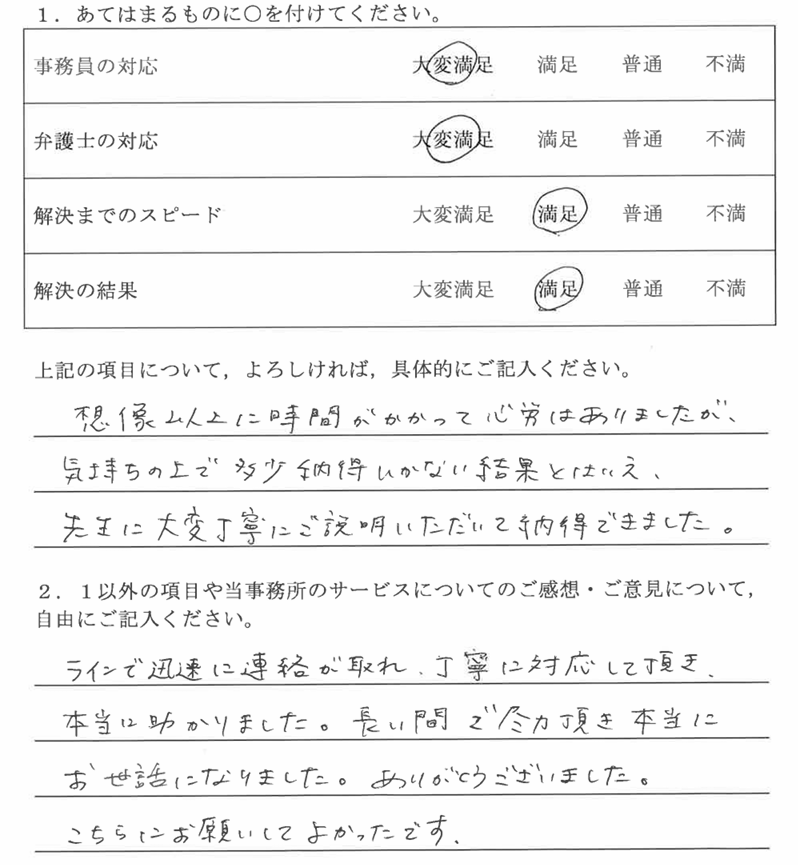 １．あてはまるものに○を付けてください。
事務員の対応　大変満足　満足　普通　不満
弁護士の対応　大変満足　満足　普通　不満
解決までのスピード　大変満足　満足　普通　不満
解決の結果　大変満足　満足　普通　不満
上記の項目について，よろしければ，具体的にご記入ください。
想像以上に時間がかかって心労はありましたが、
気持ちの上で多少納得いかない結果とはいえ、
先生に大変丁寧にご説明いただいて納得できました。
２．１以外の項目や当事務所のサービスについてのご感想・ご意見について，
自由にご記入ください。
ラインで迅速に連絡が取れ、丁寧に対応して頂き、
本当に助かりました。長い間ご尽力頂き本当に
お世話になりました。ありがとうございました。
こちらにお願いしてよかったです。